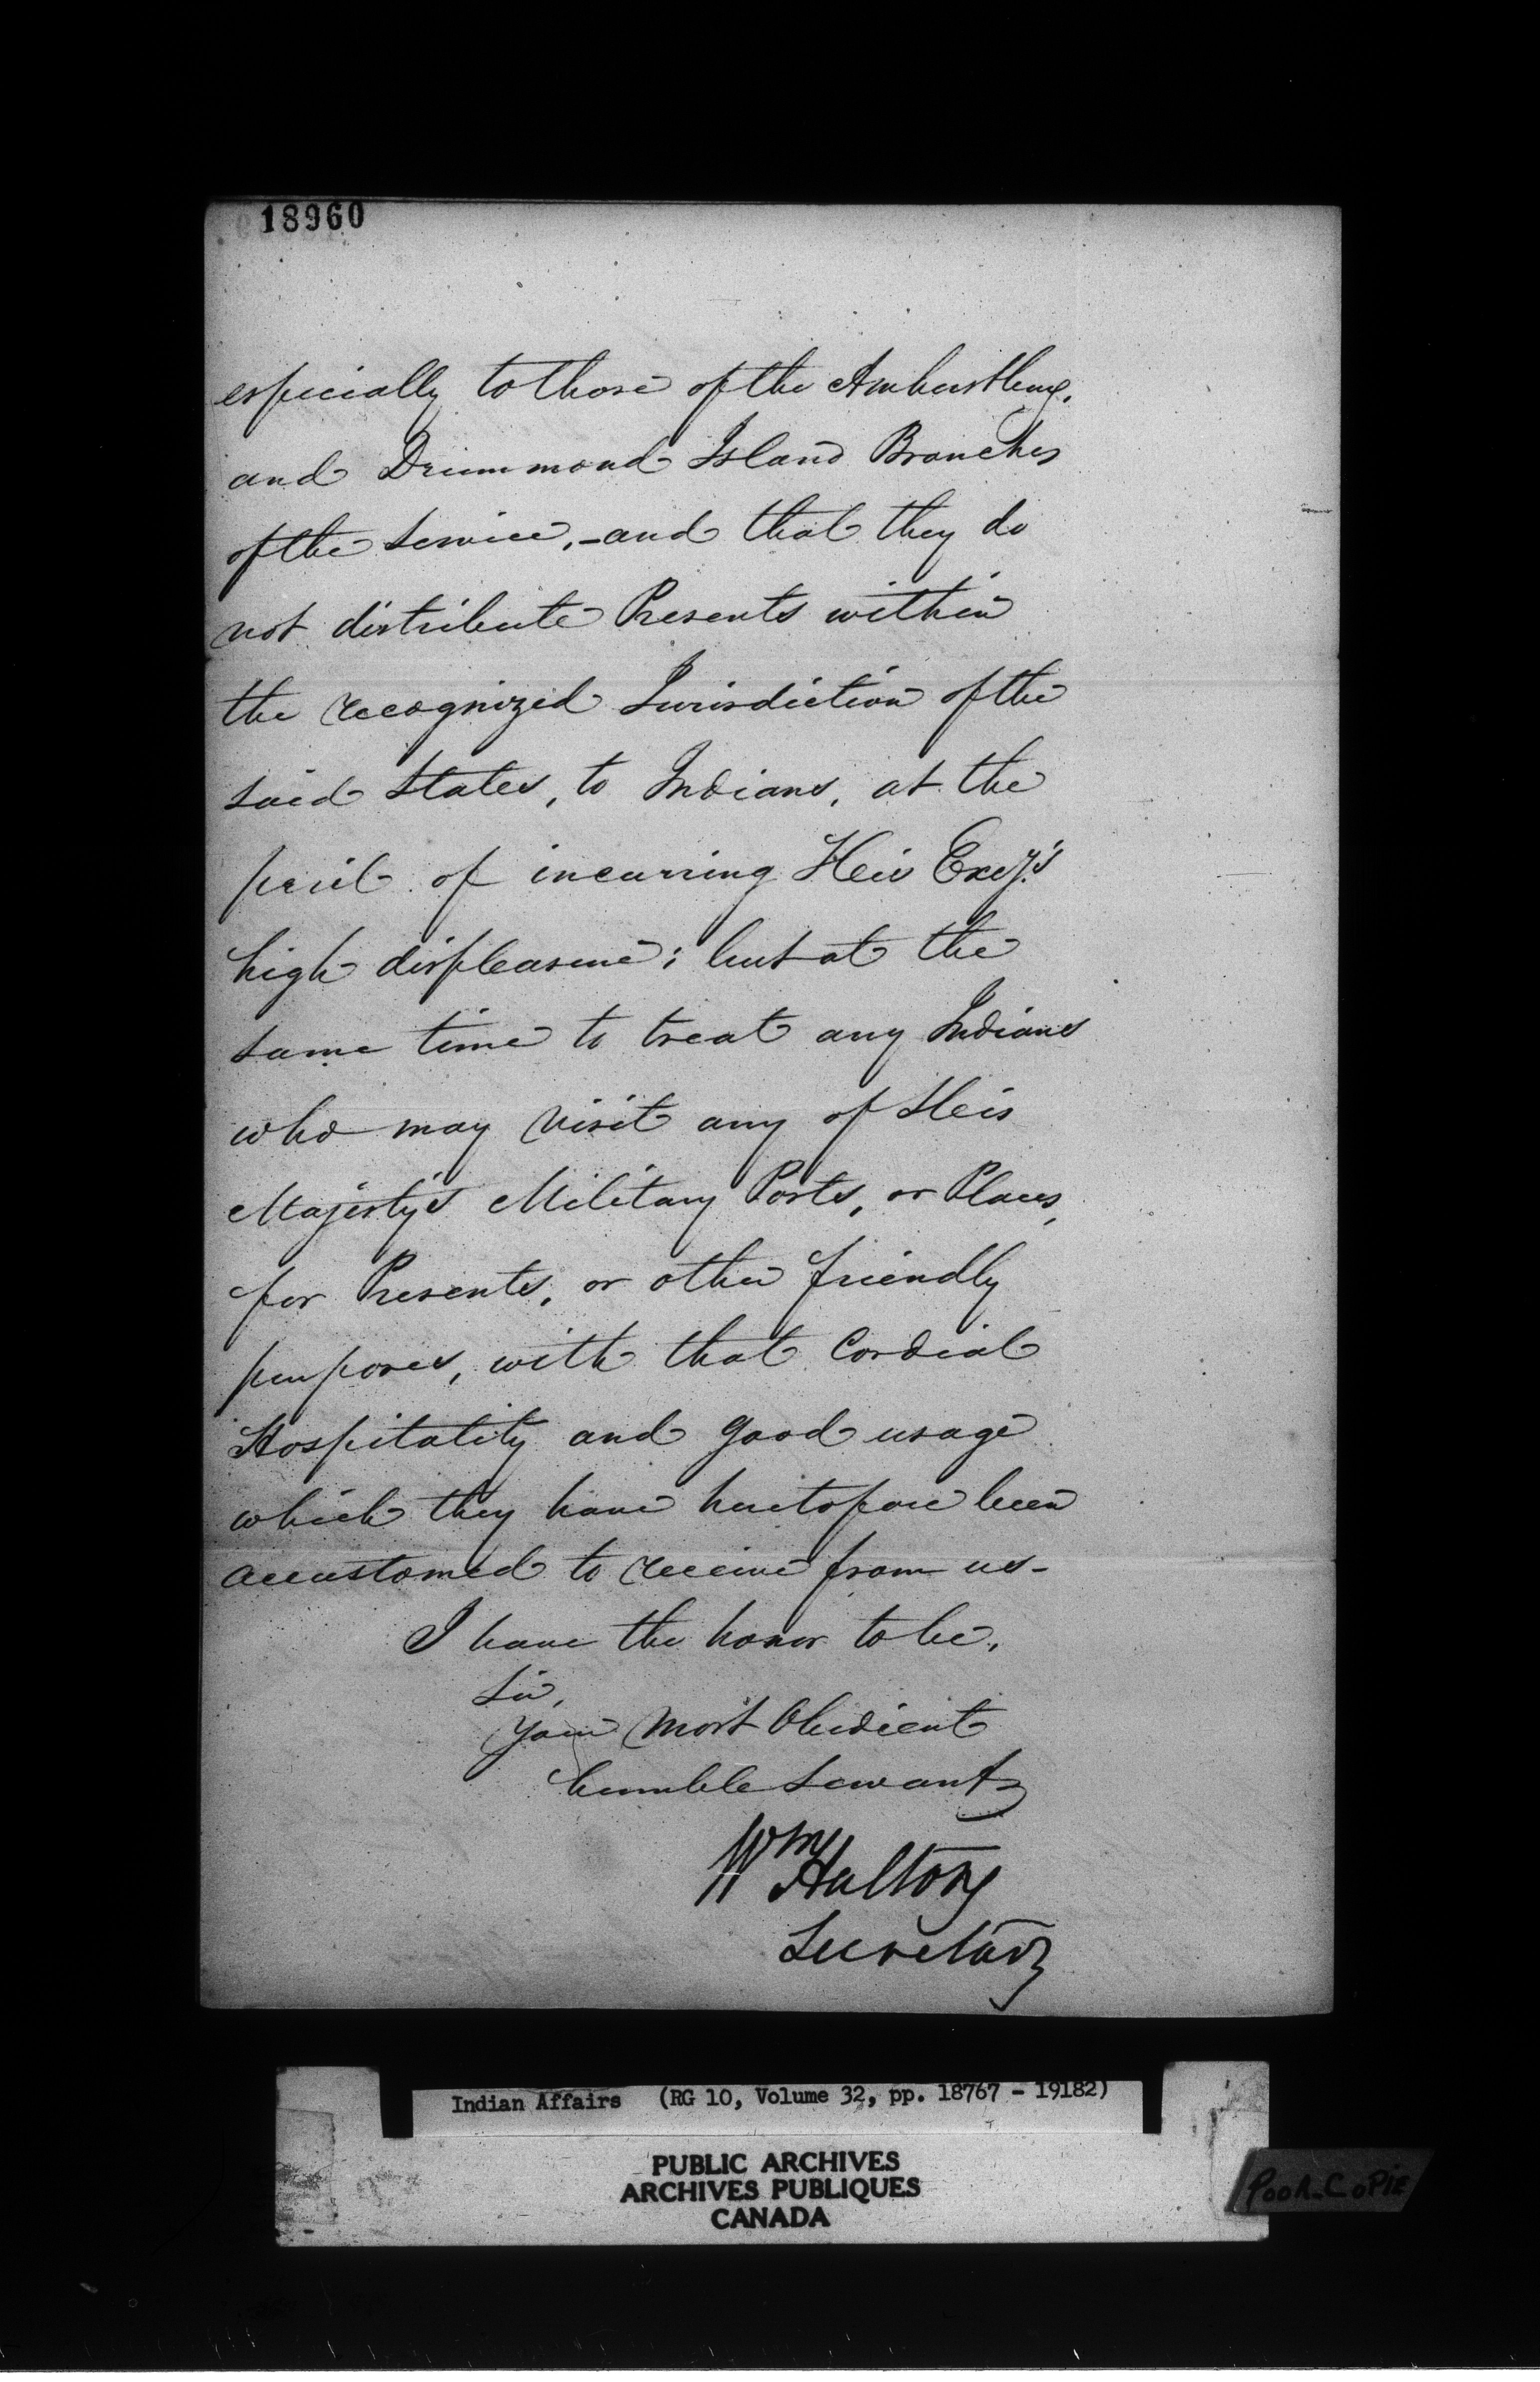 18960
especially to those of the Amherstburg,
and Drummond Island Branches
of the Service, - and that they do
not distribute Presents within
the recognized Jurisdiction of the
said States, to Indians, at the
peril of incurring His Excy's
high displeasure; but at the
same time to treat any Indians
who may visit any of His
Majesty's Military Posts, or Places,
for Presents, or other friendly
purposes, with that Cordial
Hospitality and good usage
which they have heretofore been
accustomed to receive from us -
I have the honor to be,
Sir,
Your Most Obedient
humble Servant
Wm Halton
Secretary
Indian Affairs (RG 10, Volume 32, pp. 18767 - 19182)
PUBLIC ARCHIVES
ARCHIVES PUBLIQUES
CANADA
POOR COPIE